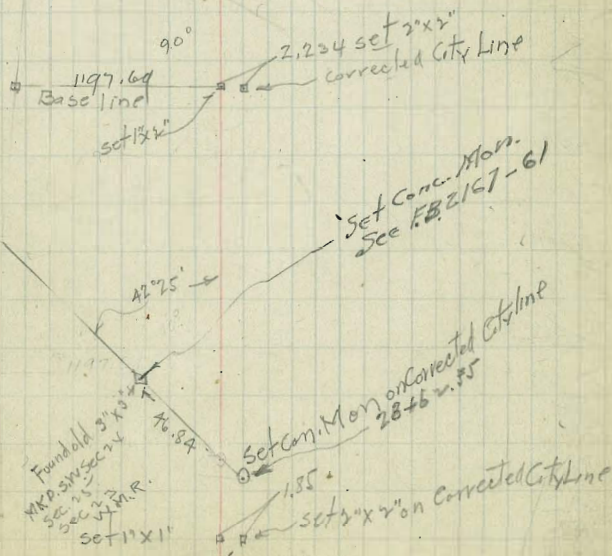 90°
2,234 set 2"x2"
corrected City Line
1197.64
Base line
set 1"x2"
Set Conc. Mon.
See F.B. 2167-61
42°25'
1197
46.84
Found old 3"x3"
MKD. S.W. Sec 24
Sec. 25
Sec 23
Set 1"x1"
Set Con. Mon on Corrected City line
28+62.35
1.85
set 2"x2" on Corrected City Line